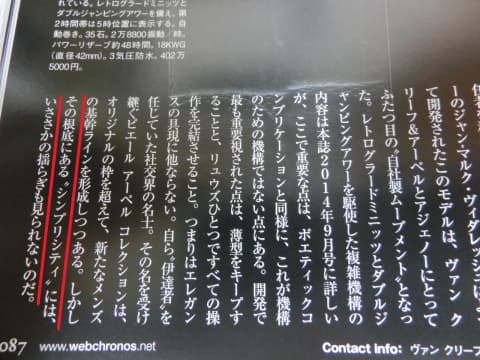 れている。レトログラードミニッツと
ダブルジャンピングアワーを備え、第
2時間帯は5時位置に表示する。自
動巻き。35石。2万8800振動/時。
パワーリザーブ約48時間。18KWG
(直径42mm)。3気圧防水。402万
5000円。
ーのジャン・マルク・ヴィダレッシ
て開発されたこのモデルは、ヴァン ク
リーフ&アーペルとアジェノーにとって
ふたつ目の“自社製ムーブメント”となっ
た。レトログラードミニッツとダブルジ
ャンピングアワーを駆使した複雑機構の
内容は本誌2014年9月号に詳しい
が、ここで重要な点は、ポエティックコ
ンプリケーションと同様に、これが機構
のための機構ではない点にある。開発で
最も重要視された点は、薄型をキープす
ることと、リュウズひとつですべての操
作を完結させること。つまりはエレガン
スの具現に他ならない。自ら“伊達者”を
任じていた社交界の名士。その名を受け
継ぐピエール アーペル コレクションは、
オリジナルの枠を超えて、新たなメンズ
の基幹ラインを形成しつつある。しかし
その根底にある“シンプリシティ”には、
いささかの揺らぎも見られないのだ。
087 www.webchronos.net
Contact info: ヴァン クリーフ